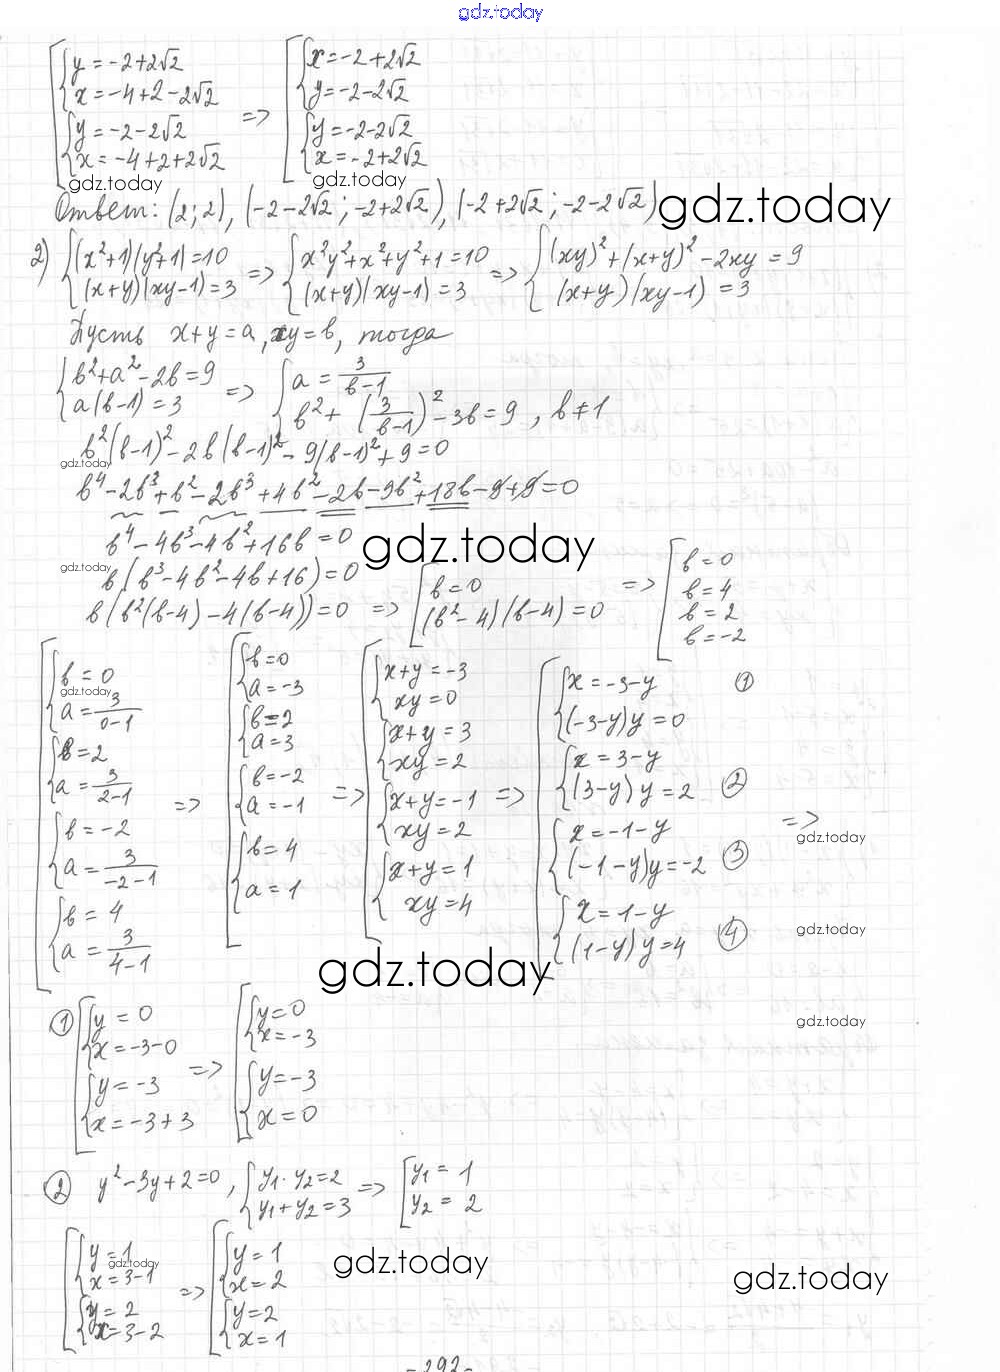 gdz.today
[ { y = -2+2√2
x = -4+2-2√2
{ y = -2-2√2
x = -4+2+2√2
=> [ { x = -2+2√2
y = -2-2√2
{ y = -2-2√2
x = -2+2√2
gdz.today gdz.today
Ответ: (2;2), (-2-2√2; -2+2√2), (-2+2√2; -2-2√2) gdz.today
2) { (x²+1)(y²+1)=10
(x+y)(xy-1)=3
=> { x²y²+x²+y²+1=10
(x+y)(xy-1)=3
=> { (xy)²+(x+y)²-2xy=9
(x+y)(xy-1)=3
Пусть x+y=a, xy=b, тогда
{ b²+a²-2b=9
a(b-1)=3
=> { a = 3/(b-1)
b²+(3/(b-1))²-3b=9, b≠1
b²(b-1)²-2b(b-1)²-9(b-1)²+9=0
gdz.today
b⁴-2b³+b²-2b³+4b²-2b-9b²+18b-9+9=0
b⁴-4b³-4b²+16b=0 gdz.today
gdz.today b(b³-4b²-4b+16)=0
b(b²(b-4)-4(b-4))=0 => [ b=0
(b²-4)(b-4)=0
=> [ b=0
b=4
b=2
b=-2
[ { b=0
gdz.today
a = 3/(0-1)
{ b=2
a = 3/(2-1)
{ b=-2
a = 3/(-2-1)
{ b=4
a = 3/(4-1)
=> [ { b=0
a=-3
{ b=2
a=3
{ b=-2
a=-1
{ b=4
a=1
=> [ { x+y=-3
xy=0
{ x+y=3
xy=2
{ x+y=-1
xy=2
{ x+y=1
xy=4
=> [ { x=-3-y ①
(-3-y)y=0
{ x=3-y
(3-y)y=2 ②
{ x=-1-y
(-1-y)y=-2 ③
{ x=1-y
(1-y)y=4 ④
=>
gdz.today
gdz.today
gdz.today
gdz.today
① [ { y=0
x=-3-0
{ y=-3
x=-3+3
=> [ { y=0
x=-3
{ y=-3
x=0
② y²-3y+2=0, { y₁·y₂=2
y₁+y₂=3
=> [ y₁=1
y₂=2
[ { y=1
gdz.today
x=3-1
{ y=2
x=3-2
=> [ { y=1
x=2
{ y=2
x=1
gdz.today
gdz.today
-292-